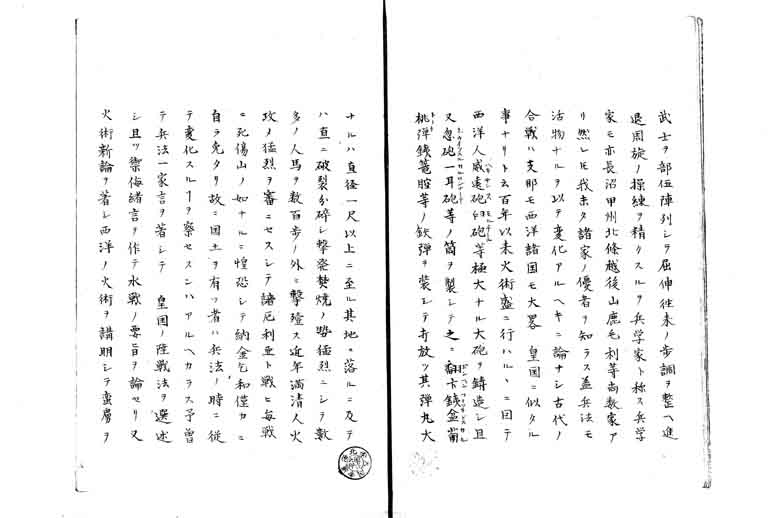 武士ヲ部伍陣列シテ屈伸往来ノ歩調ヲ整ヘ進
退周旋ノ操練ヲ精クスルヲ兵学家ト称ス兵学
家モ亦長沼甲州北條越後山鹿毛利等尚数家ア
リ然レ𪜈我未タ諸家ノ優者ヲ知ラス蓋兵法モ
活物ナルヲ以テ変化アルヘキニ論ナシ古代ノ
合戦ハ支那モ西洋諸国モ大畧 皇国ニ似タル
事ナリト云百年以来火術盛ニ行ハル丶ニ因テ
西洋人威遠砲臼砲等極大ナル大砲ヲ鋳造シ且
又忽砲一耳砲等ノ筒ヲ製シテ之ニ
桃弾銕篭腔等ノ鈇弾ヲ装シテ弃放ツ其弾丸大
ナルハ直径一尺以上ニ至ル其地ニ落ルニ及テ
ハ直ニ破裂分碎シ撃発焚焼ノ勢猛烈ニシテ数
多ノ人馬ヲ数百歩ノ外ニ撃殪ス近年満清人火
攻ノ猛烈ヲ審ニセスシテ諳厄利亜ト戦ヒ毎戦
ニ死傷山ノ如ナルニ惶恐シテ納金乞和僅カニ
自ラ免タリ故ニ国土ヲ有ツ者ハ兵法ノ時ニ従
テ変化スルヿヲ察セスンハアルヘカラス予曽
テ兵法一家言ヲ著シテ 皇国ノ陸戦法ヲ選述
シ且ツ禦侮緒言ヲ作テ水戦ノ要旨ヲ論セリ又
火術新論ヲ著シ西洋ノ火術ヲ講明シテ蛮虜ヲ